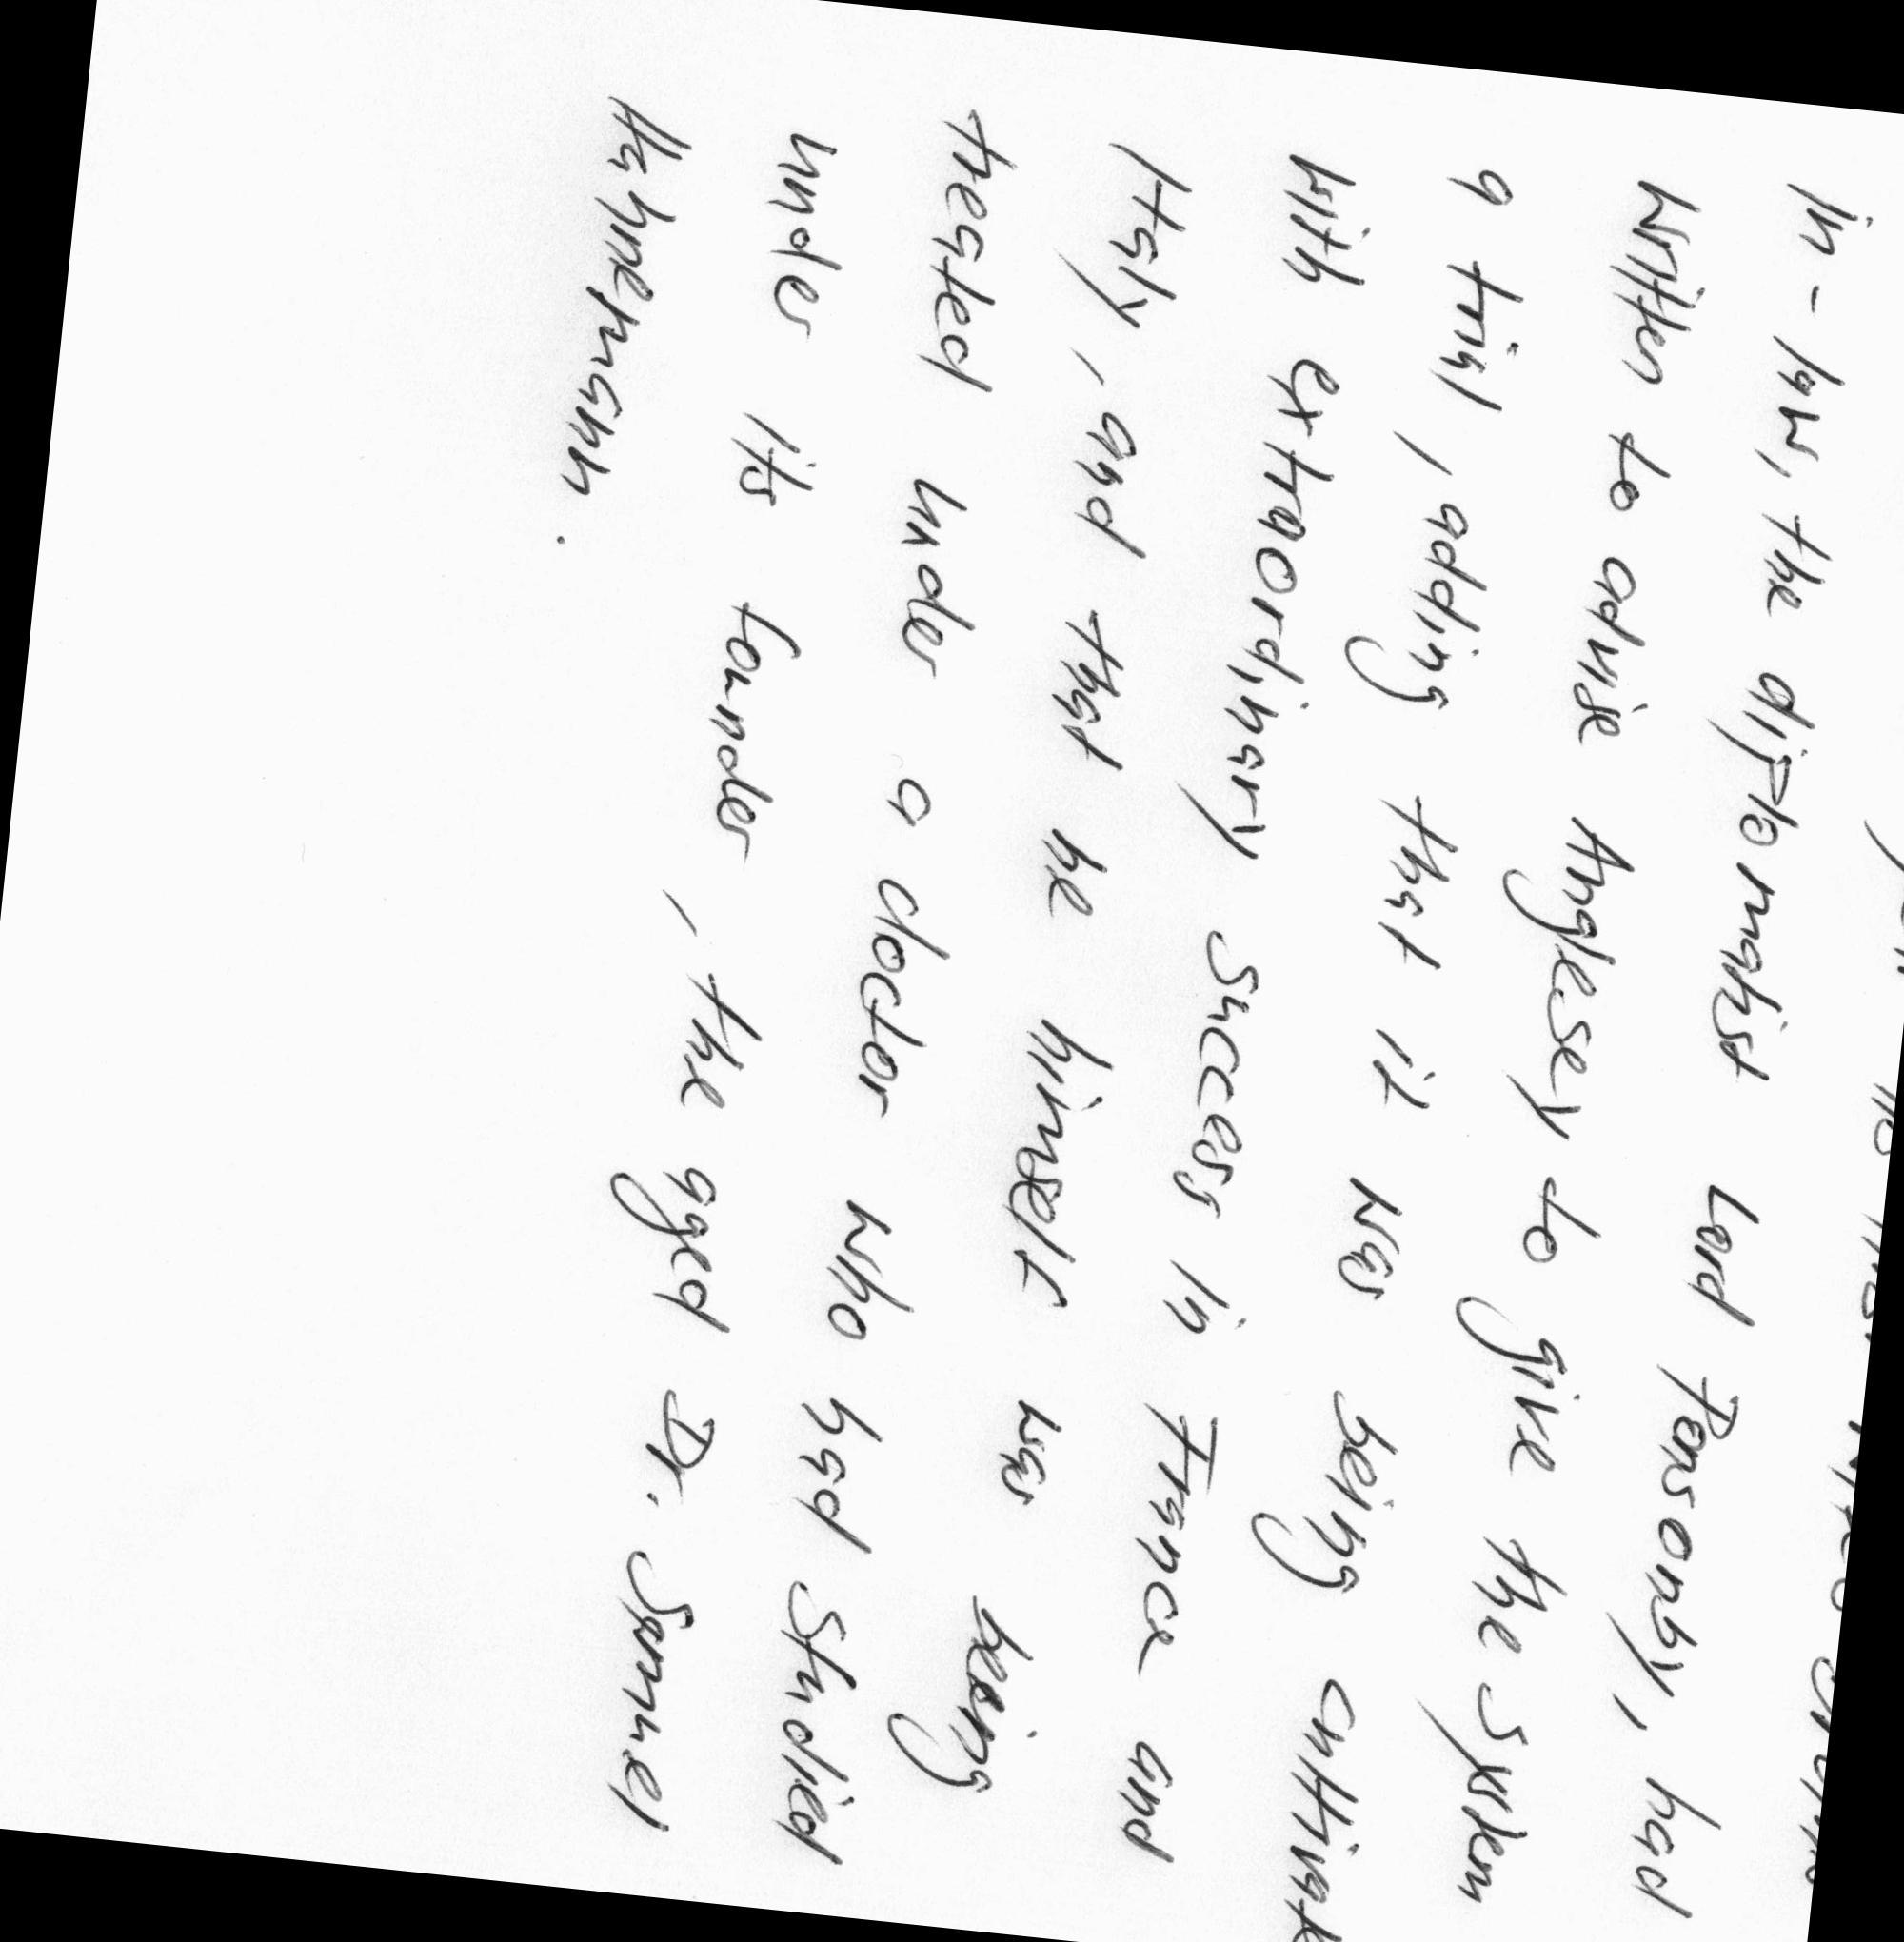 in-law, the diplomatist Lord Ponsonby, had
written to advise Anglesey to give the system
a trial, adding that it was being cultivate
with extraordinary success in France and
Italy, and that he himself was being
treated under a doctor who had studied
under its founder, the aged Dr. Samuel
Hahnemann.